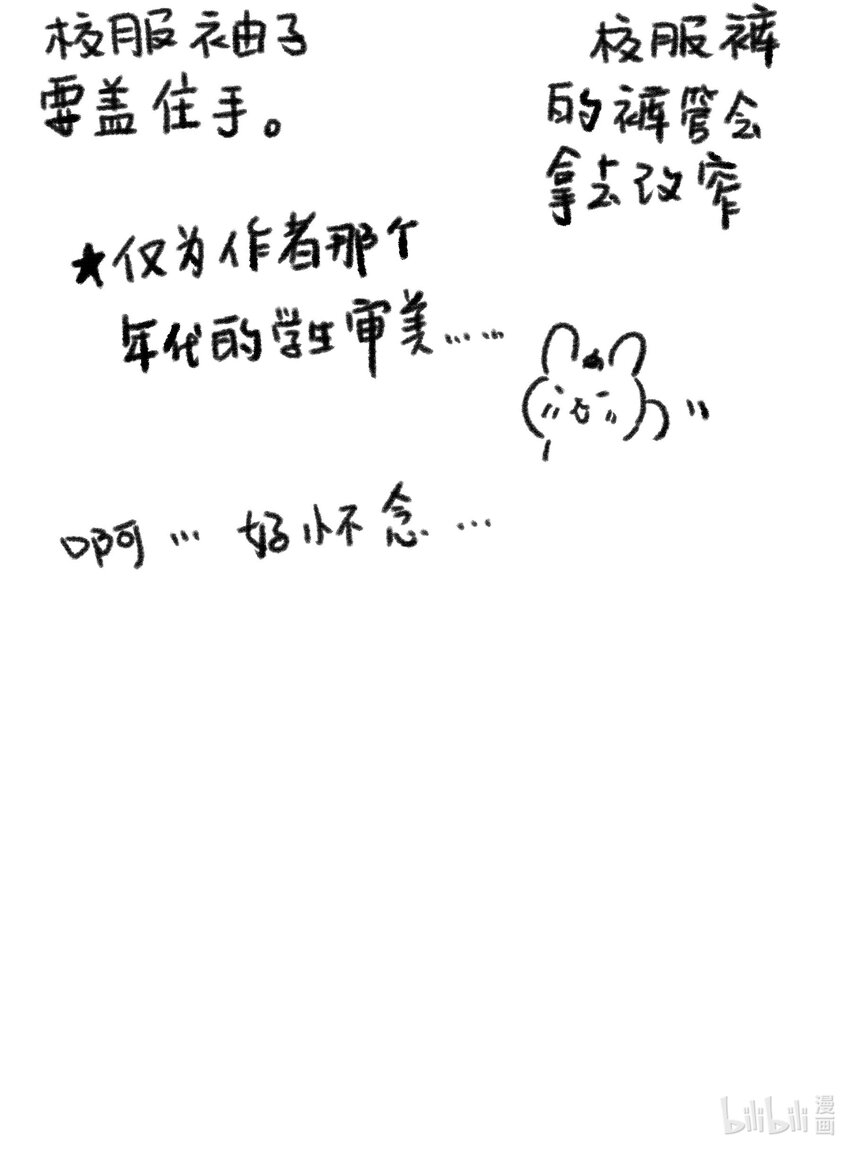 校服袖子
要盖住手。
校服裤
的裤管会
拿去改窄
★仅为作者那个
年代的学生审美……
啊…好怀念…
bilibili漫画